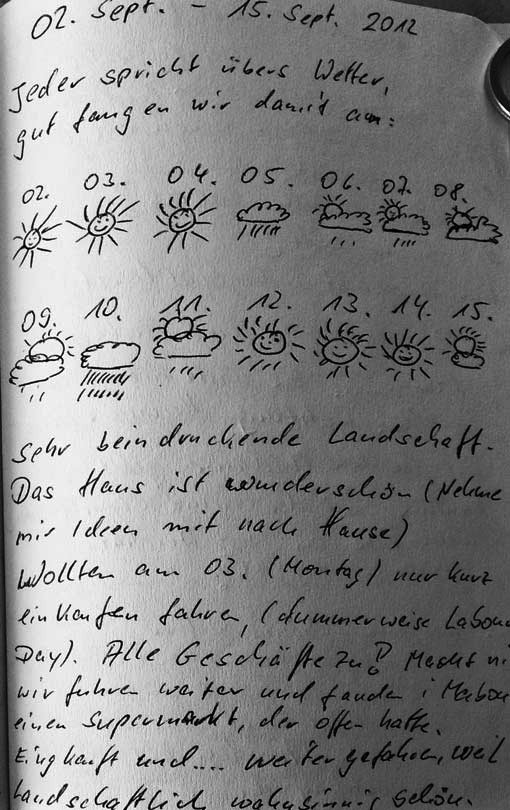 02. Sept. - 15. Sept. 2012
Jeder spricht übers Wetter,
gut fangen wir damit an:
02. 03. 04. 05. 06. 07. 08.
09. 10. 11. 12. 13. 14. 15.
Sehr beindruckende Landschaft.
Das Haus ist wunderschön (Nehme
mir Ideen mit nach Hause)
Wollten am 03. (Montag) nur kurz
einkaufen fahren, (dummerweise Labour
Day). Alle Geschäfte zu! Macht ni
wir fuhren weiter und fanden i
einen Supermarkt, der offen hatte.
Eingkauft und.... weiter gefahren, weil
Landschaftlich wahnsinnig schön.